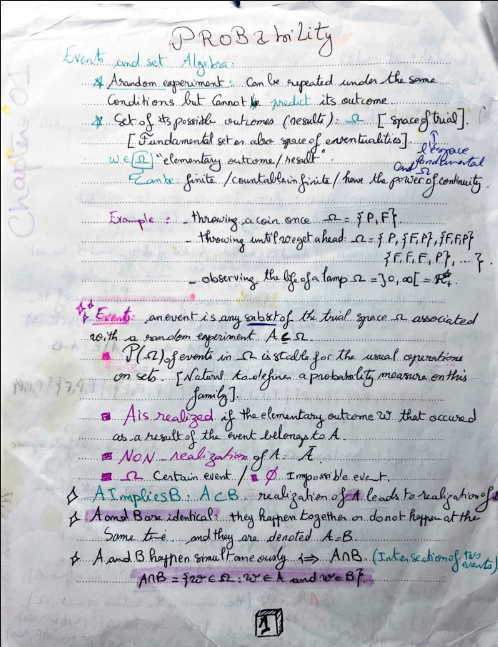 PROBability
Chapter 01
Event and set Algebra:
A random experiment: Can be repeated under the same
Conditions but Cannot predict its outcome.
Set of its possible outcomes (results): Ω [space of trial].
[Fundamental set or also space of eventualities]
l'espace
fondamental
Ω
w∈Ω "elementary outcome/result"
Can be finite / countable infinite / have the power of continuity.
Example: - throwing a coin once Ω = {P, F}.
- throwing until we get a head Ω = {P, {F,P}, {F,F,P}
{F,F,F,P}, ...}
- observing the life of a lamp Ω = ]0, ∞[ =
Event: an event is any subset of the trial space Ω associated
with a random experiment A⊆Ω
P(Ω) of events in Ω is stable for the usual operations
on sets. [Natural to define a probability measure on this
family].
A is realized if the elementary outcome w that occured
as a result of the event belongs to A.
NON_realization of A: Ā
Ω Certain event / ∅ Impossible event.
A Implies B: A⊂B realization of A leads to realization of
A and B are identical: they happen together or do not happen at the
Same and they are denoted A=B.
A and B happen simultaneously ⟺ A∩B. (Intersection of two
events)
A∩B = {w∈Ω: w∈A and w∈B}.
1